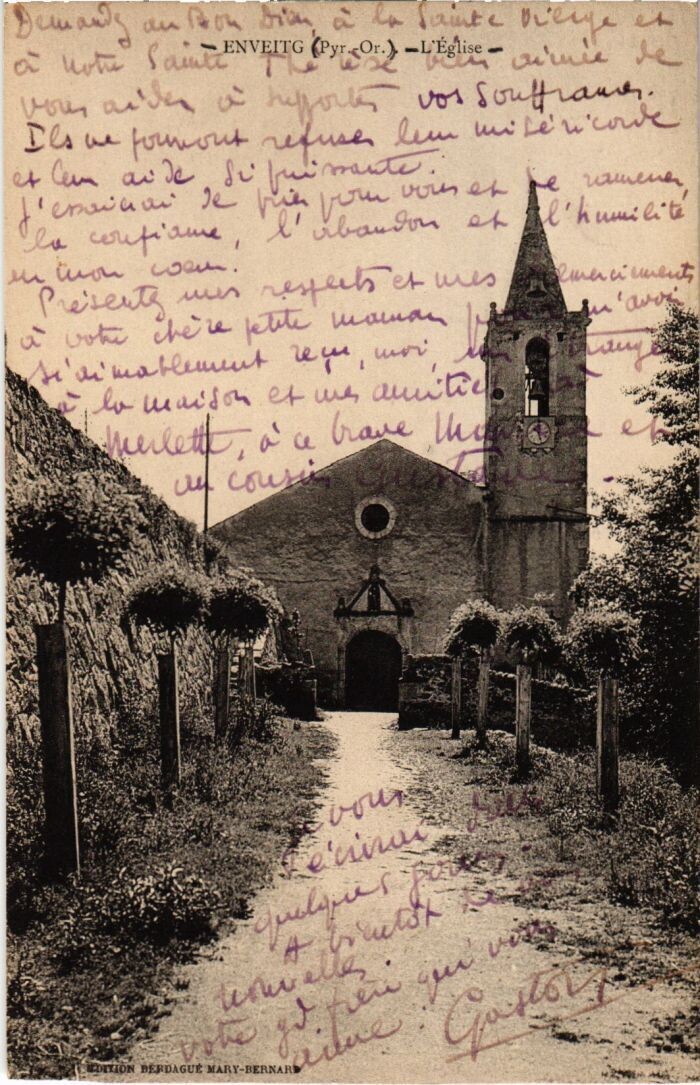 Demandez au Bon Dieu, à la Sainte Vierge et
— ENVEITG (Pyr.-Or.). — L'Église —
à notre Sainte Thérèse bien aimée de
vous aider à supporter vos souffrances.
Ils ne pourront refuser leur miséricorde
et leur aide si puissante.
J'essaierai de prier pour vous et de ramener,
la confiance, l'abandon et l'humilité
en mon coeur.
Présentez mes respects et mes remerciements
à votre chère petite maman pour m'avoir
si aimablement reçu, moi, un étranger
à la maison et mes amitiés à
Merlette, à ce brave et
au cousin Gustave.
Je vous
écrirai dans
quelques jours.
A bientôt de vos
nouvelles
votre gd frère qui vous
aime. Gaston
ÉDITION BERDAGUÉ MARY-BERNARD